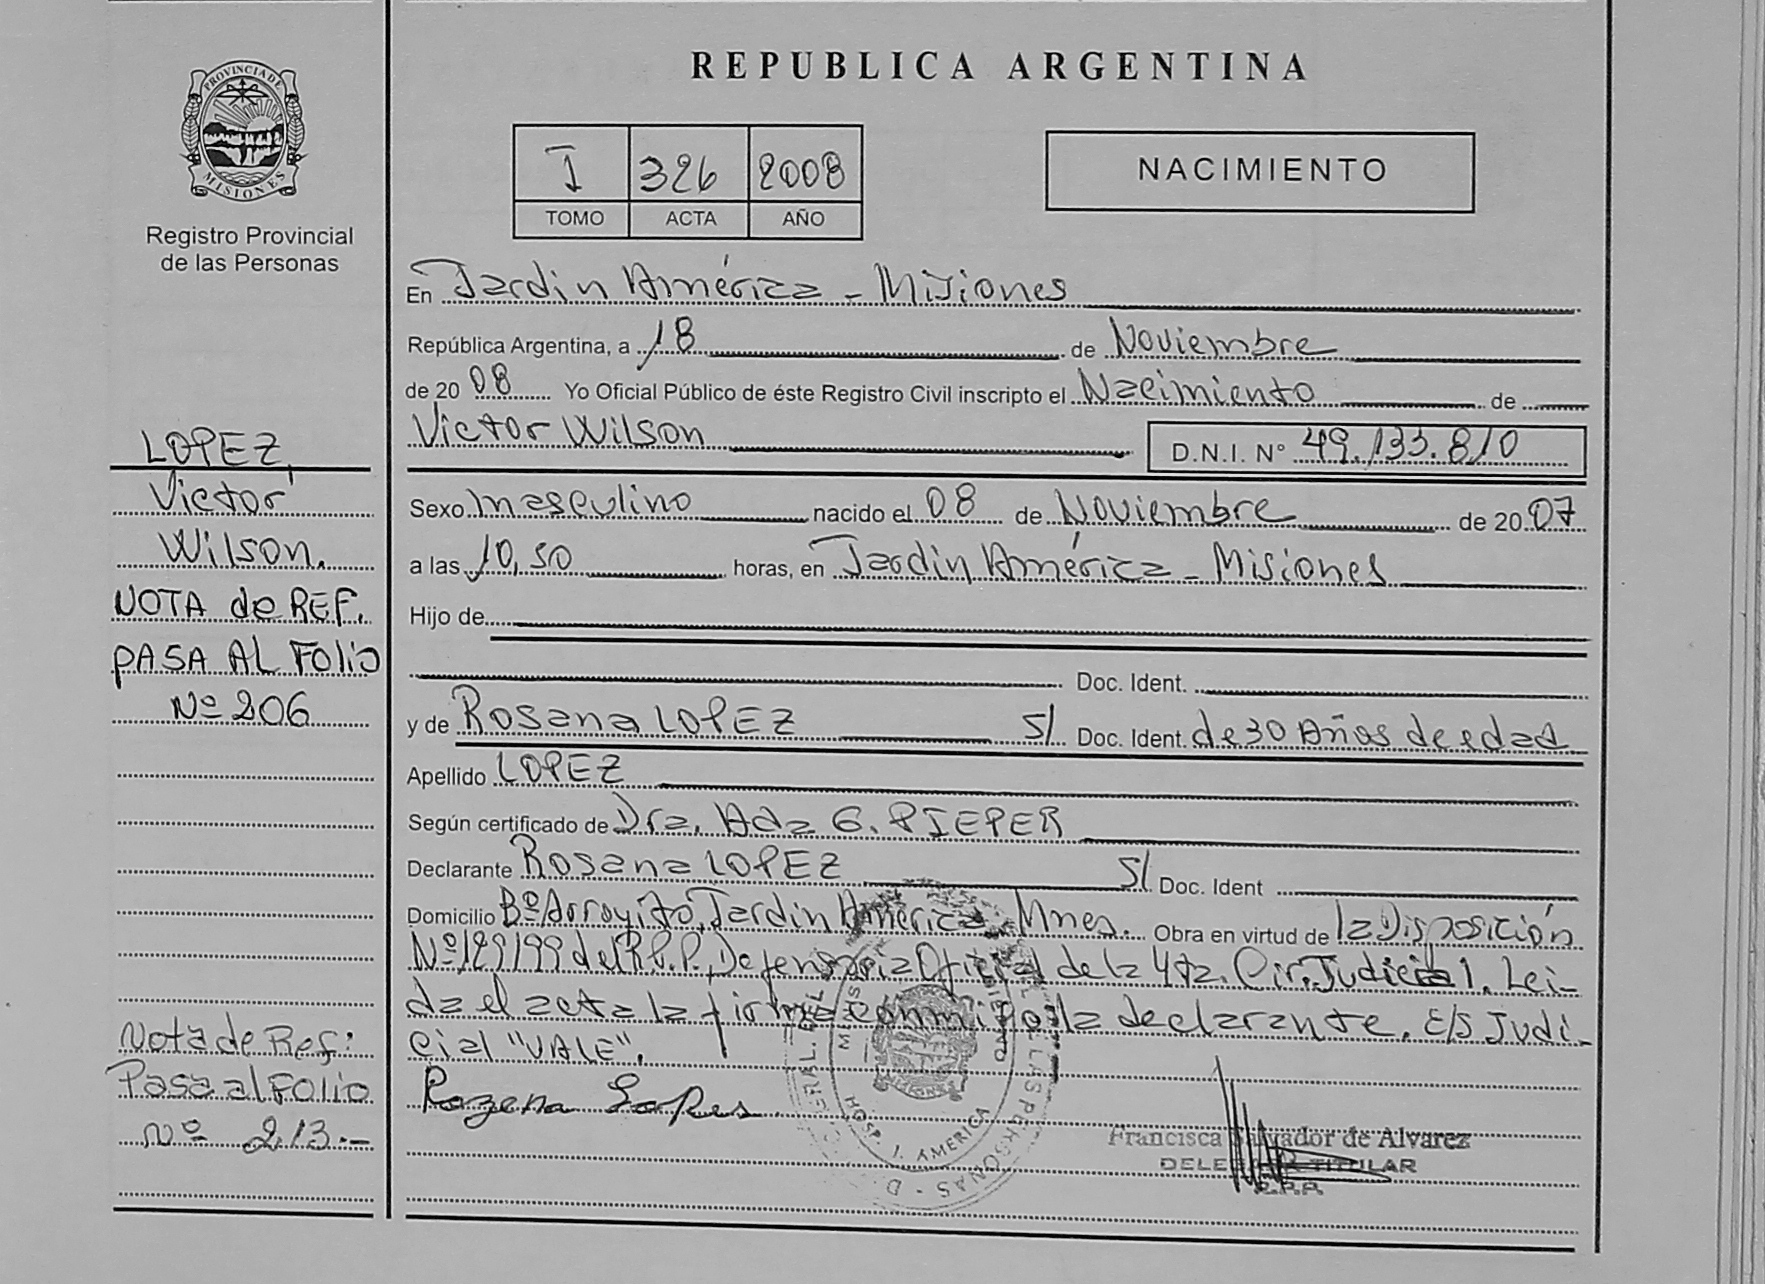 PROVINCIA DE
MISIONES
Registro Provincial
de las Personas
LOPEZ,
Victor
Wilson.
NOTA de REF.
PASA AL Folio
Nº 206
Nota de Ref:
Pasa al Folio
Nº 213.-
REPUBLICA ARGENTINA
I 326 2008
TOMO ACTA AÑO
NACIMIENTO
En Jardin América - Misiones
República Argentina, a 18 de Noviembre
de 20 08 Yo Oficial Público de éste Registro Civil inscripto el Nacimiento de
Victor Wilson D.N.I. Nº 49.133.810
Sexo masculino nacido el 08 de Noviembre de 20 07
a las 10,50 horas, en Jardin América - Misiones
Hijo de
Doc. Ident.
y de Rosana LOPEZ S/ Doc. Ident. de 30 Años de edad
Apellido LOPEZ
Según certificado de Dra. Ada G. PIEPER
Declarante Rosana LOPEZ S/ Doc. Ident
Domicilio Bº Arroyito, Jardin América - Mnes. Obra en virtud de la Disposición
Nº 129/99 del R.P.P., Defensoria Oficial de la 4ta. Cir. Judicial. Lei-
da el acta la firma conmigo la declarante. E/S Judi-
cial "VALE".
Rozena Lopes
HOSP. J. AMERICA
Francisca Salvador de Alvarez
TITULAR
R.P.P.